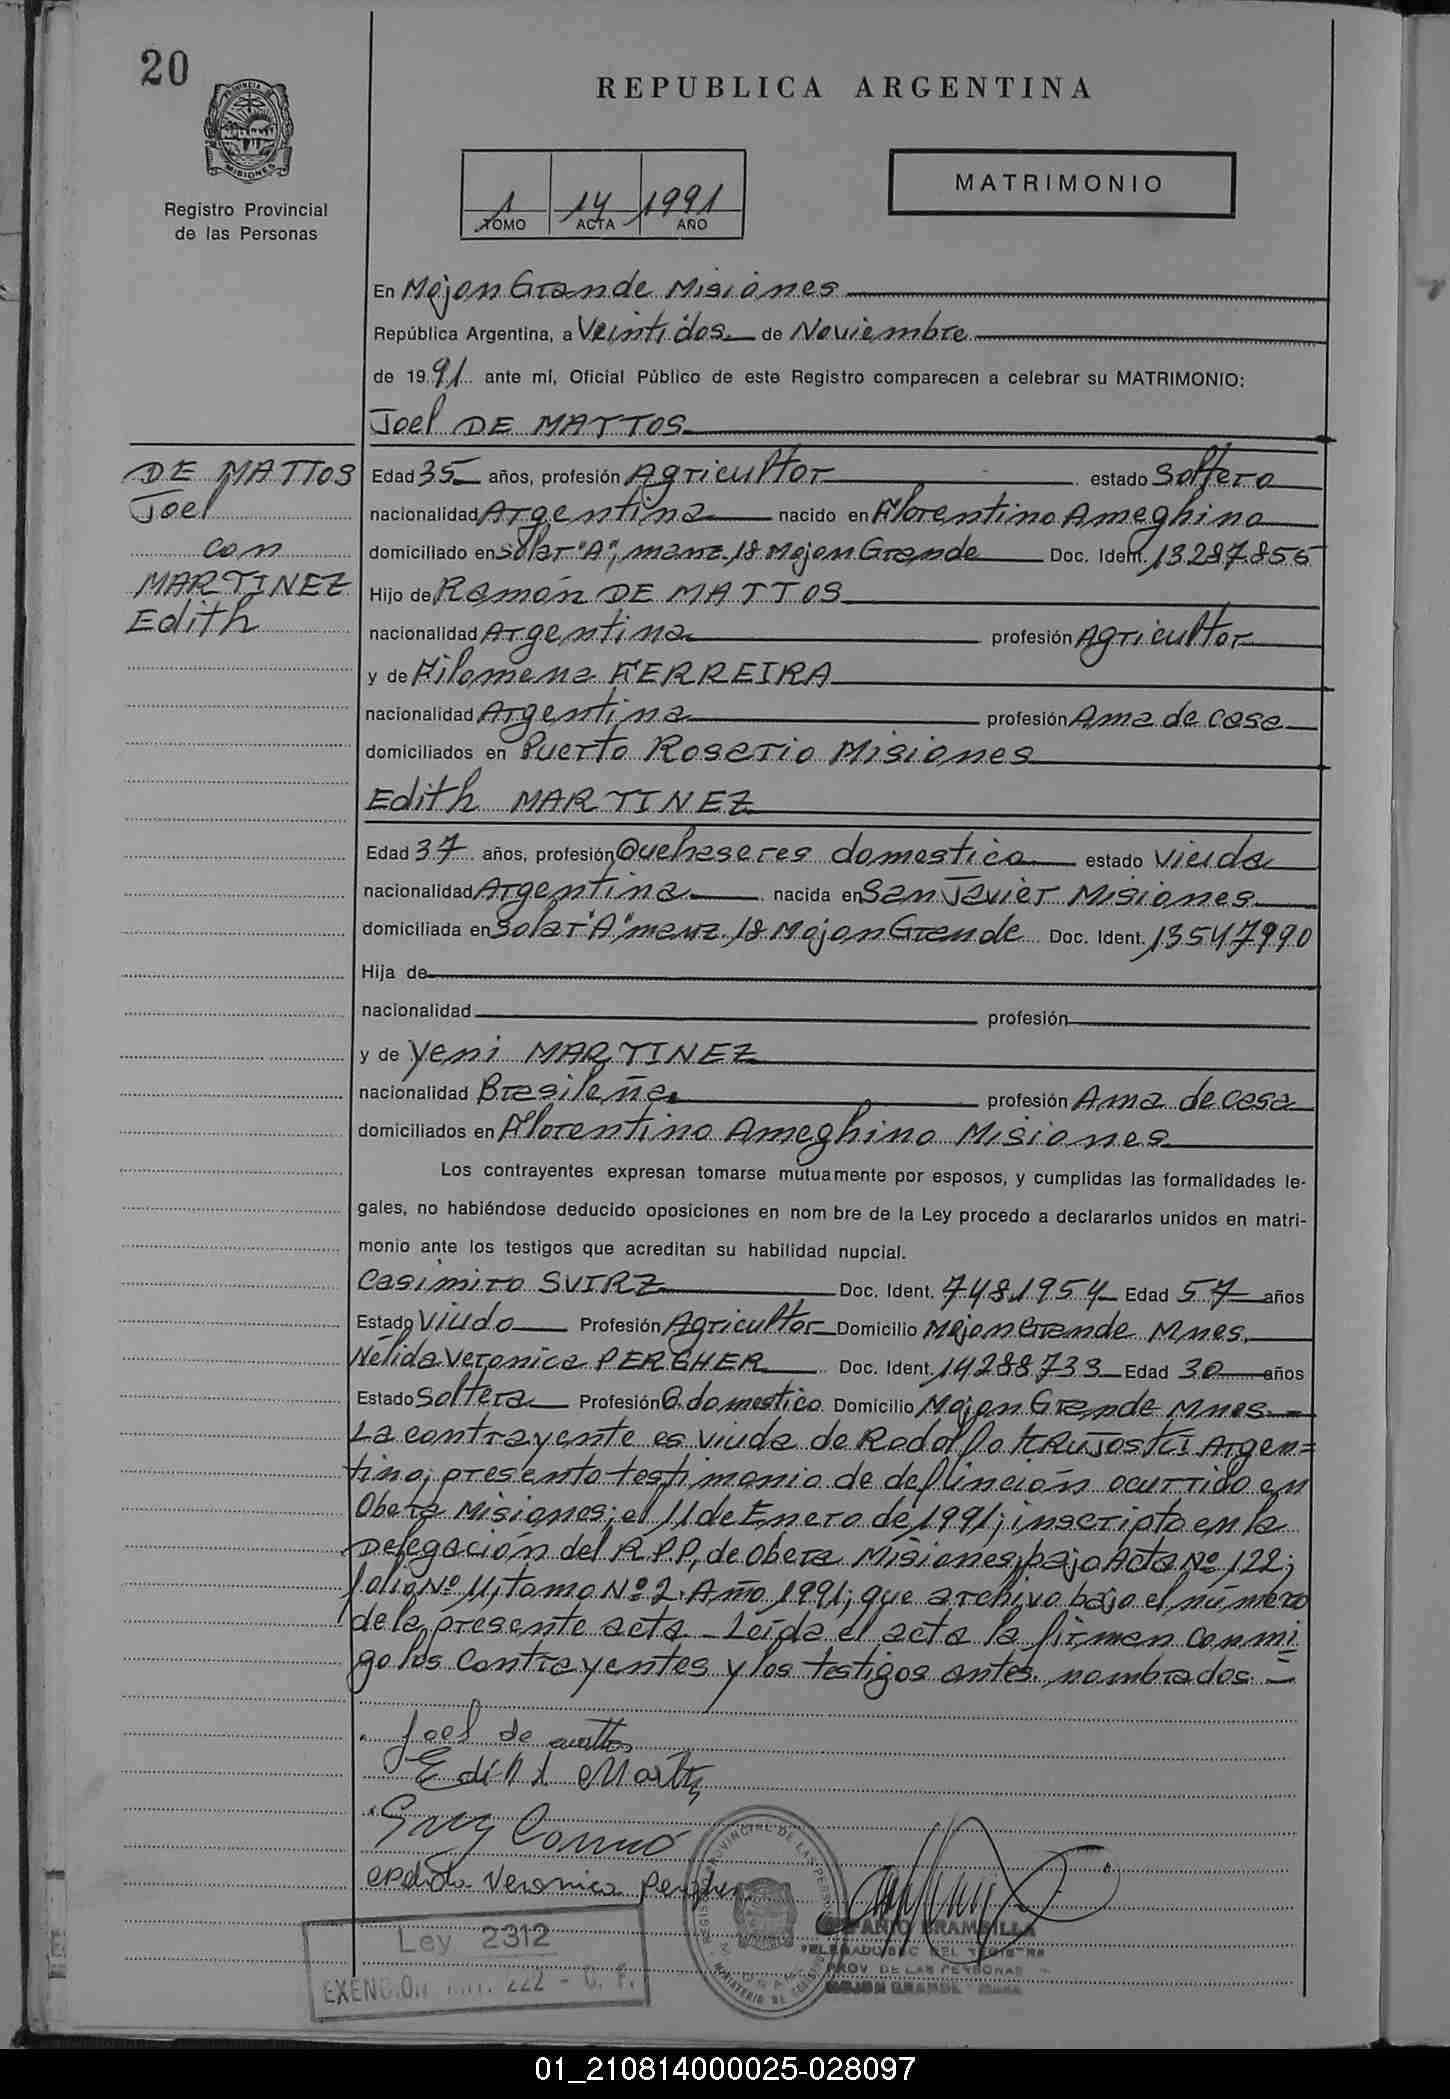 20
REPUBLICA ARGENTINA
PROVINCIA DE
MISIONES
Registro Provincial
de las Personas
1 14 1991
TOMO ACTA AÑO
MATRIMONIO
En Mojon Grande Misiones
República Argentina, a Veintidos de Noviembre
de 1991 ante mí, Oficial Público de este Registro comparecen a celebrar su MATRIMONIO:
Joel DE MATTOS
DE MATTOS
Joel
con
MARTINEZ
Edith
Edad 35 años, profesión Agricultor estado Soltero
nacionalidad Argentina nacido en Florentino Ameghino
domiciliado en Solar "A", manz. 18 Mojon Grande Doc. Ident. 13287.856
Hijo de Ramón DE MATTOS
nacionalidad Argentina profesión Agricultor
y de Filomena FERREIRA
nacionalidad Argentina profesión Ama de casa
domiciliados en Puerto Rosario Misiones
Edith MARTINEZ
Edad 37 años, profesión Quehaseres domestico estado viuda
nacionalidad Argentina nacida en San Javier Misiones
domiciliada en Solar "A" manz. 18 Mojon Grande Doc. Ident. 13547990
Hija de
nacionalidad profesión
y de Yeni MARTINEZ
nacionalidad Brasileña profesión Ama de casa
domiciliados en Florentino Ameghino Misiones
Los contrayentes expresan tomarse mutuamente por esposos, y cumplidas las formalidades le-
gales, no habiéndose deducido oposiciones en nom bre de la Ley procedo a declararlos unidos en matri-
monio ante los testigos que acreditan su habilidad nupcial.
Casimiro SVIRZ Doc. Ident. 7481954 Edad 57 años
Estado Viudo Profesión Agricultor Domicilio Mojon Grande Mnes.
Nélida Veronica PERGHER Doc. Ident. 14288733 Edad 30 años
Estado Soltera Profesión Q. domestico Domicilio Mojon Grande Mnes.
La contrayente es viuda de Rodolfo KRUJOSKI Argen=
tino; presento testimonio de deflinción ocurrido en
Obera Misiones; el 11 de Enero de 1991; inscripto en la
Delegación del R.P.P, de Obera Misiones, bajo Acta Nº 122;
folio Nº 11, tomo Nº 2. Año 1991; que archivo bajo el número
de la presente acta. Leída el acta la firman conmi
go los contrayentes y los testigos antes nombrados.
Joel de mattos
Edith Martinez
Veronica Pergher
Ley 2312
222 - C. F.
BRAMBILLA
PROV. DE LAS PERSONAS
MOJON GRANDE
01_210814000025-028097